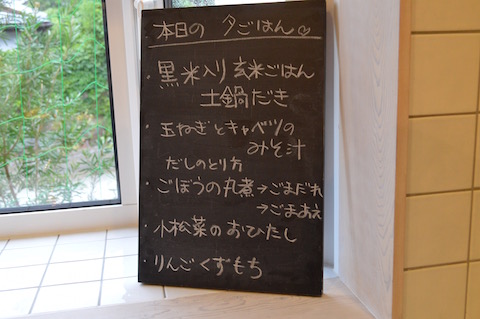 本日の 夕ごはん♡
・黒米入り玄米ごはん
土鍋だき
・玉ねぎとキャベツの
みそ汁
だしのとり方
・ごぼうの丸煮→ごまだれ
→ごまあえ
・小松菜のおひたし
・りんごくずもち